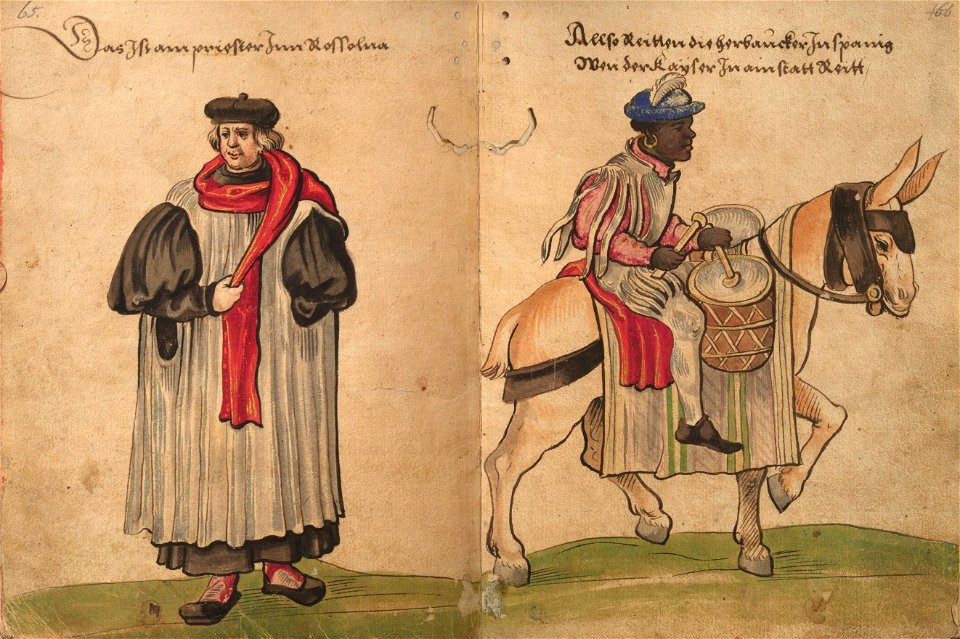 65.
Das Ist ain priester Inn Rossolna
166
Allso Reitten die herbaücker In spanig
Wen der Kayser In ain statt Reitt